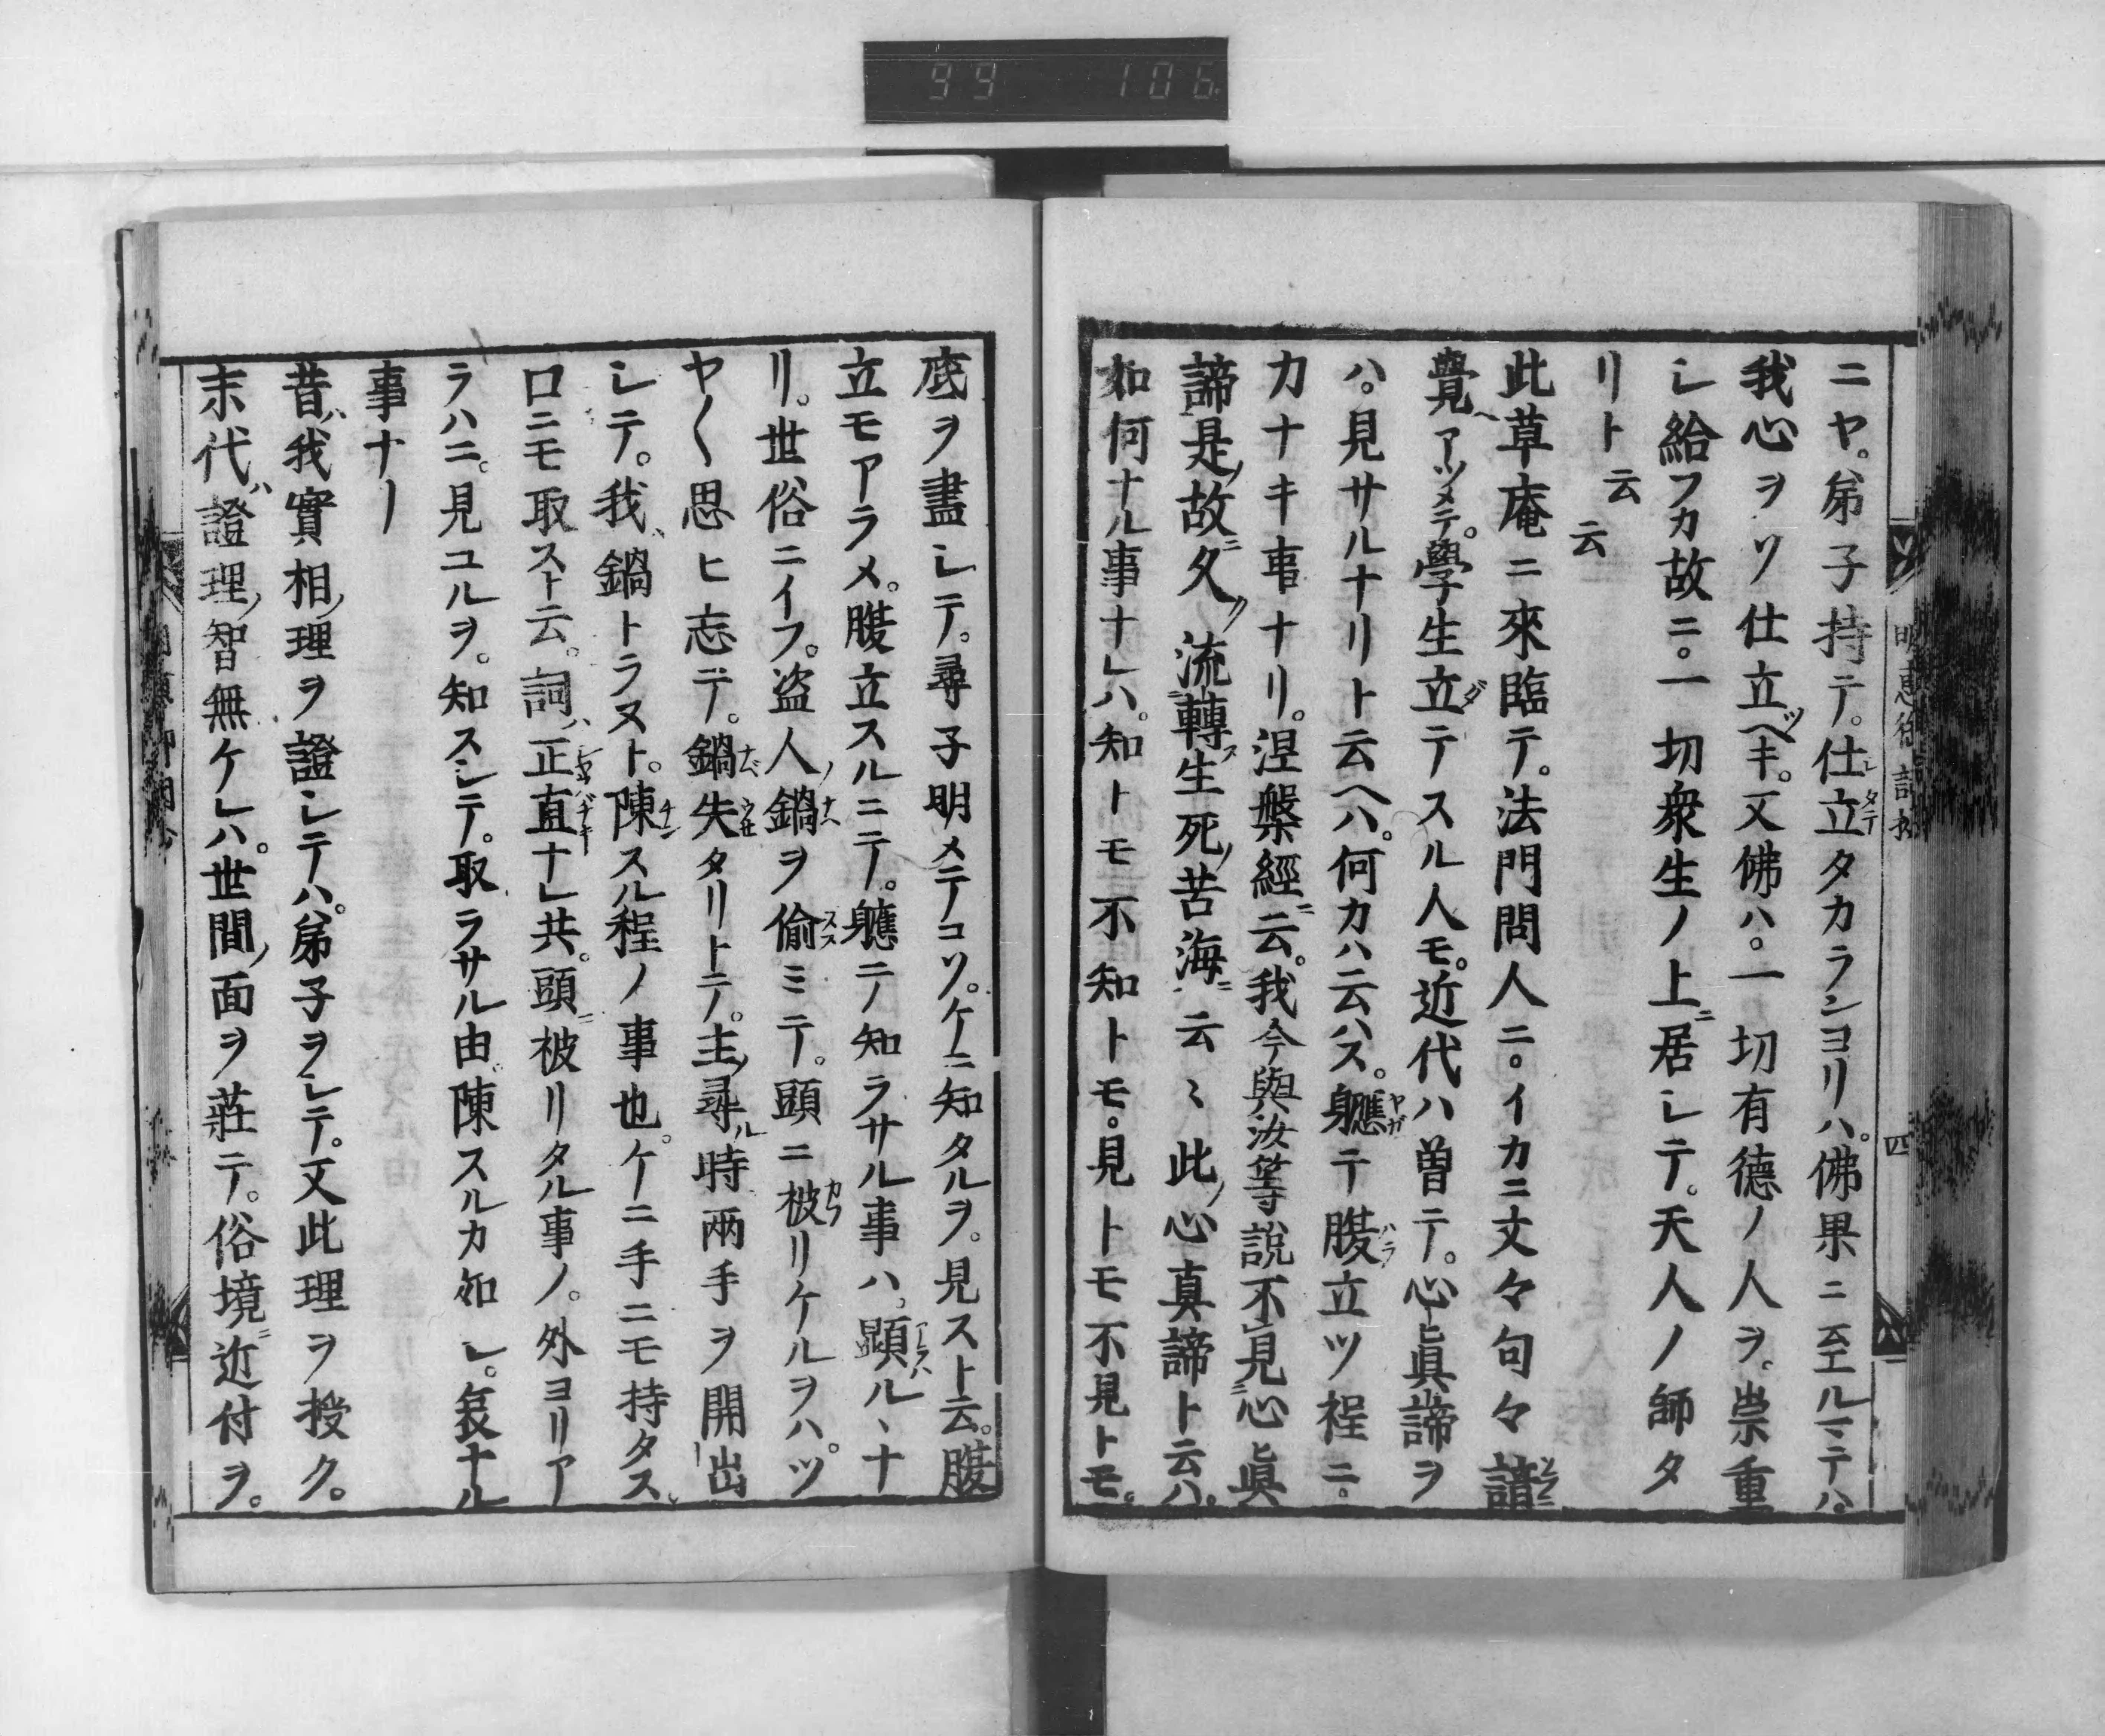 99 106
四
ニヤ。弟子持テ。仕立タカランヨリハ。佛果ニ至ルマテハ。
我心ヲソ仕立ツヘキ。又佛ハ。一切有德ノ人ヲ。崇重
シ給フカ故ニ。一切衆生ノ上ニ居シテ。天人ノ師タ
リト云云
此草庵ニ來臨テ。法門問人ニ。イカニ丈々句々諳
覺ヘアツメテ。學生立ダテスル人モ。近代ハ曽テ。心ト眞諦ヲ
ハ。見サルナリト云ヘハ。何カハ云ハス。軈テ腹立ツ程ニ。
カナキ事ナリ。涅槃經ニ云。我今與汝等說不見心ト眞
諦是ノ故ニ久ク流轉ス生死ノ苦海ニ云〻此ノ心真諦ト云ハ。
如何ナル事ナ𠃊ハ。知トモ不知トモ。見トモ不見トモ。
底ヲ盡シテ。尋子明メテコソ。ケニ知タルヲ。見スト云。腹
立モアラメ。腹立スルニテ。軈テ知ラサル事ハ。顕ルヽナ
リ。世俗ニイフ。盜人ノ鍋ヲ偷ミテ。頭ニ被リケルヲハ。ツ
ヤ〱思ヒ忘テ。鍋失タリトテ。主ノ尋ル時兩手ヲ開出
シテ。我ハ鍋トラヌト。陳スル程ノ事也。ケニ手ニモ持タス。
口ニモ取スト云。詞ハ正直ナ𠃊共。頭ニ被リタル事ノ。外ヨリア
ラハニ。見ユルヲ。知スシテ。取ラサル由陳スルカ如シ。哀ナル
事ナー
昔ハ我實相ノ理ヲ證シテハ。弟子ヲシテ。又此理ヲ授ク。
末代ハ證理ノ智無ケ𠃊ハ。世間ノ面ヲ莊テ。俗境ニ近付ヲ。